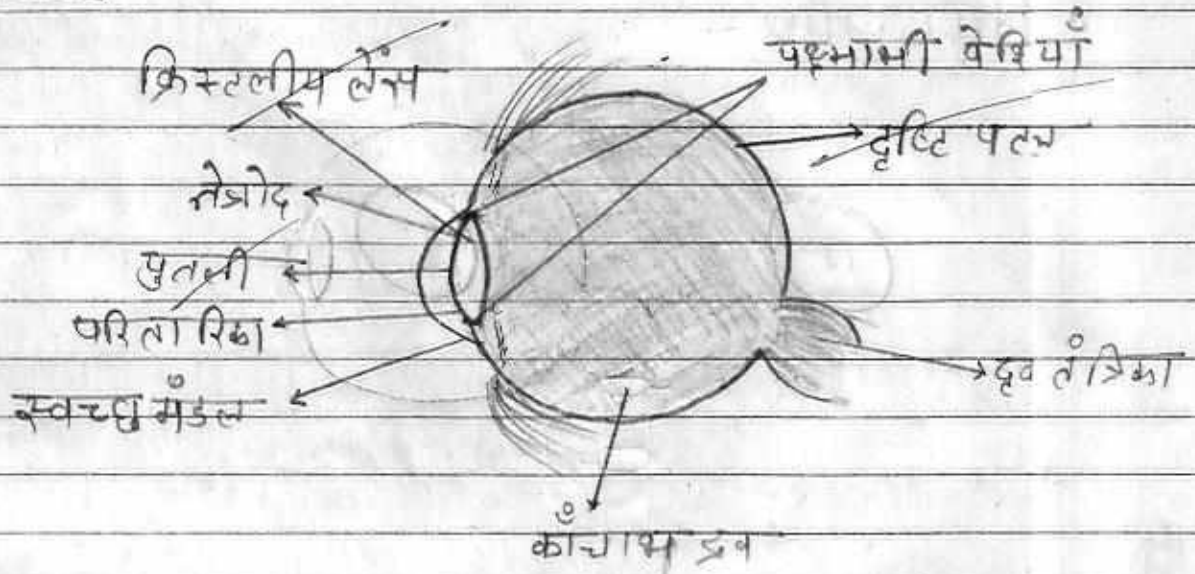 क्रिस्टलीय लेंस
पक्ष्माभी पेशियाँ
दृष्टि पटल
नेत्रोद
पुतली
परितारिका
स्वच्छ मंडल
दृक तंत्रिका
काँचाभ द्रव